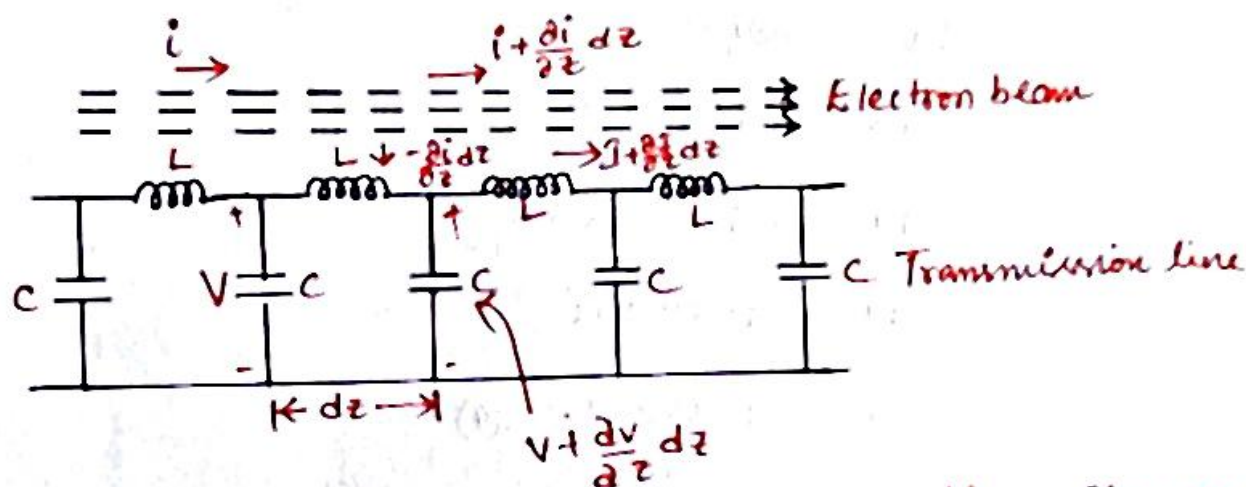 i i + ∂i/∂z dz
Electron beam
L L - ∂i/∂z dz I + ∂I/∂z dz
L L
+ +
C V C C C C Transmission line
- -
dz
V + ∂V/∂z dz